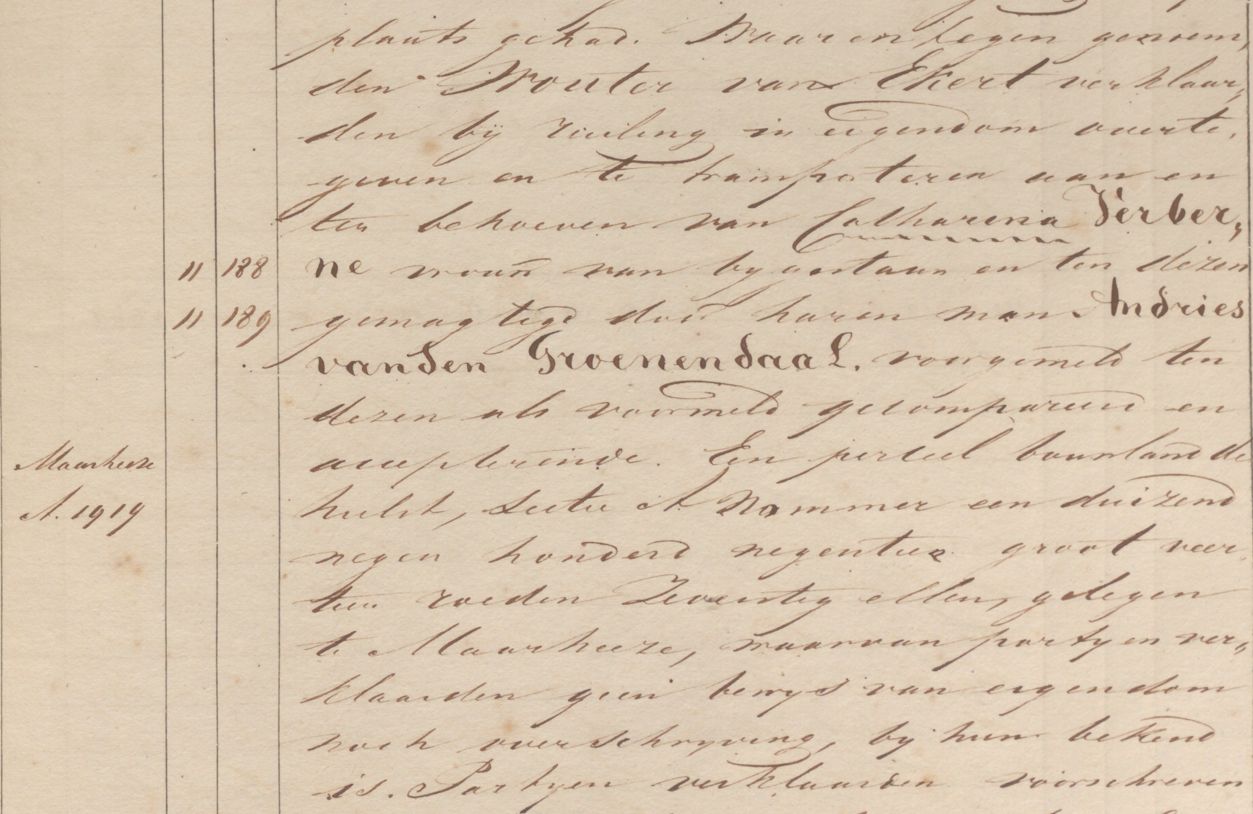 plaats gehad. Waarentegen genoem,
den Wouter van Ekert verklaar,
den bij ruiling in eigendom overte,
geven en te transporteren aan en
ten behoeven van Catharina Verber„
11 188 ne vrouw van bygestaan en ten dezen
11 189 gemagtigd door haren man Andries
van den Groenendaal. voorgemeld ten
dezen als voormeld gecompareerd en
Maarheeze accepterende. Een perceel bouwland de
A. 1919 hulst, Sectie A Nommer een duizend
negen honderd negentien groot veer,
tien roeden Zeventig ellen, gelegen
te Maarheeze, waarvan partyen ver„
klaarden geen bewys van eigendom
noch overschryving, by hun bekend
is. Partyen verklaarden voorschreven